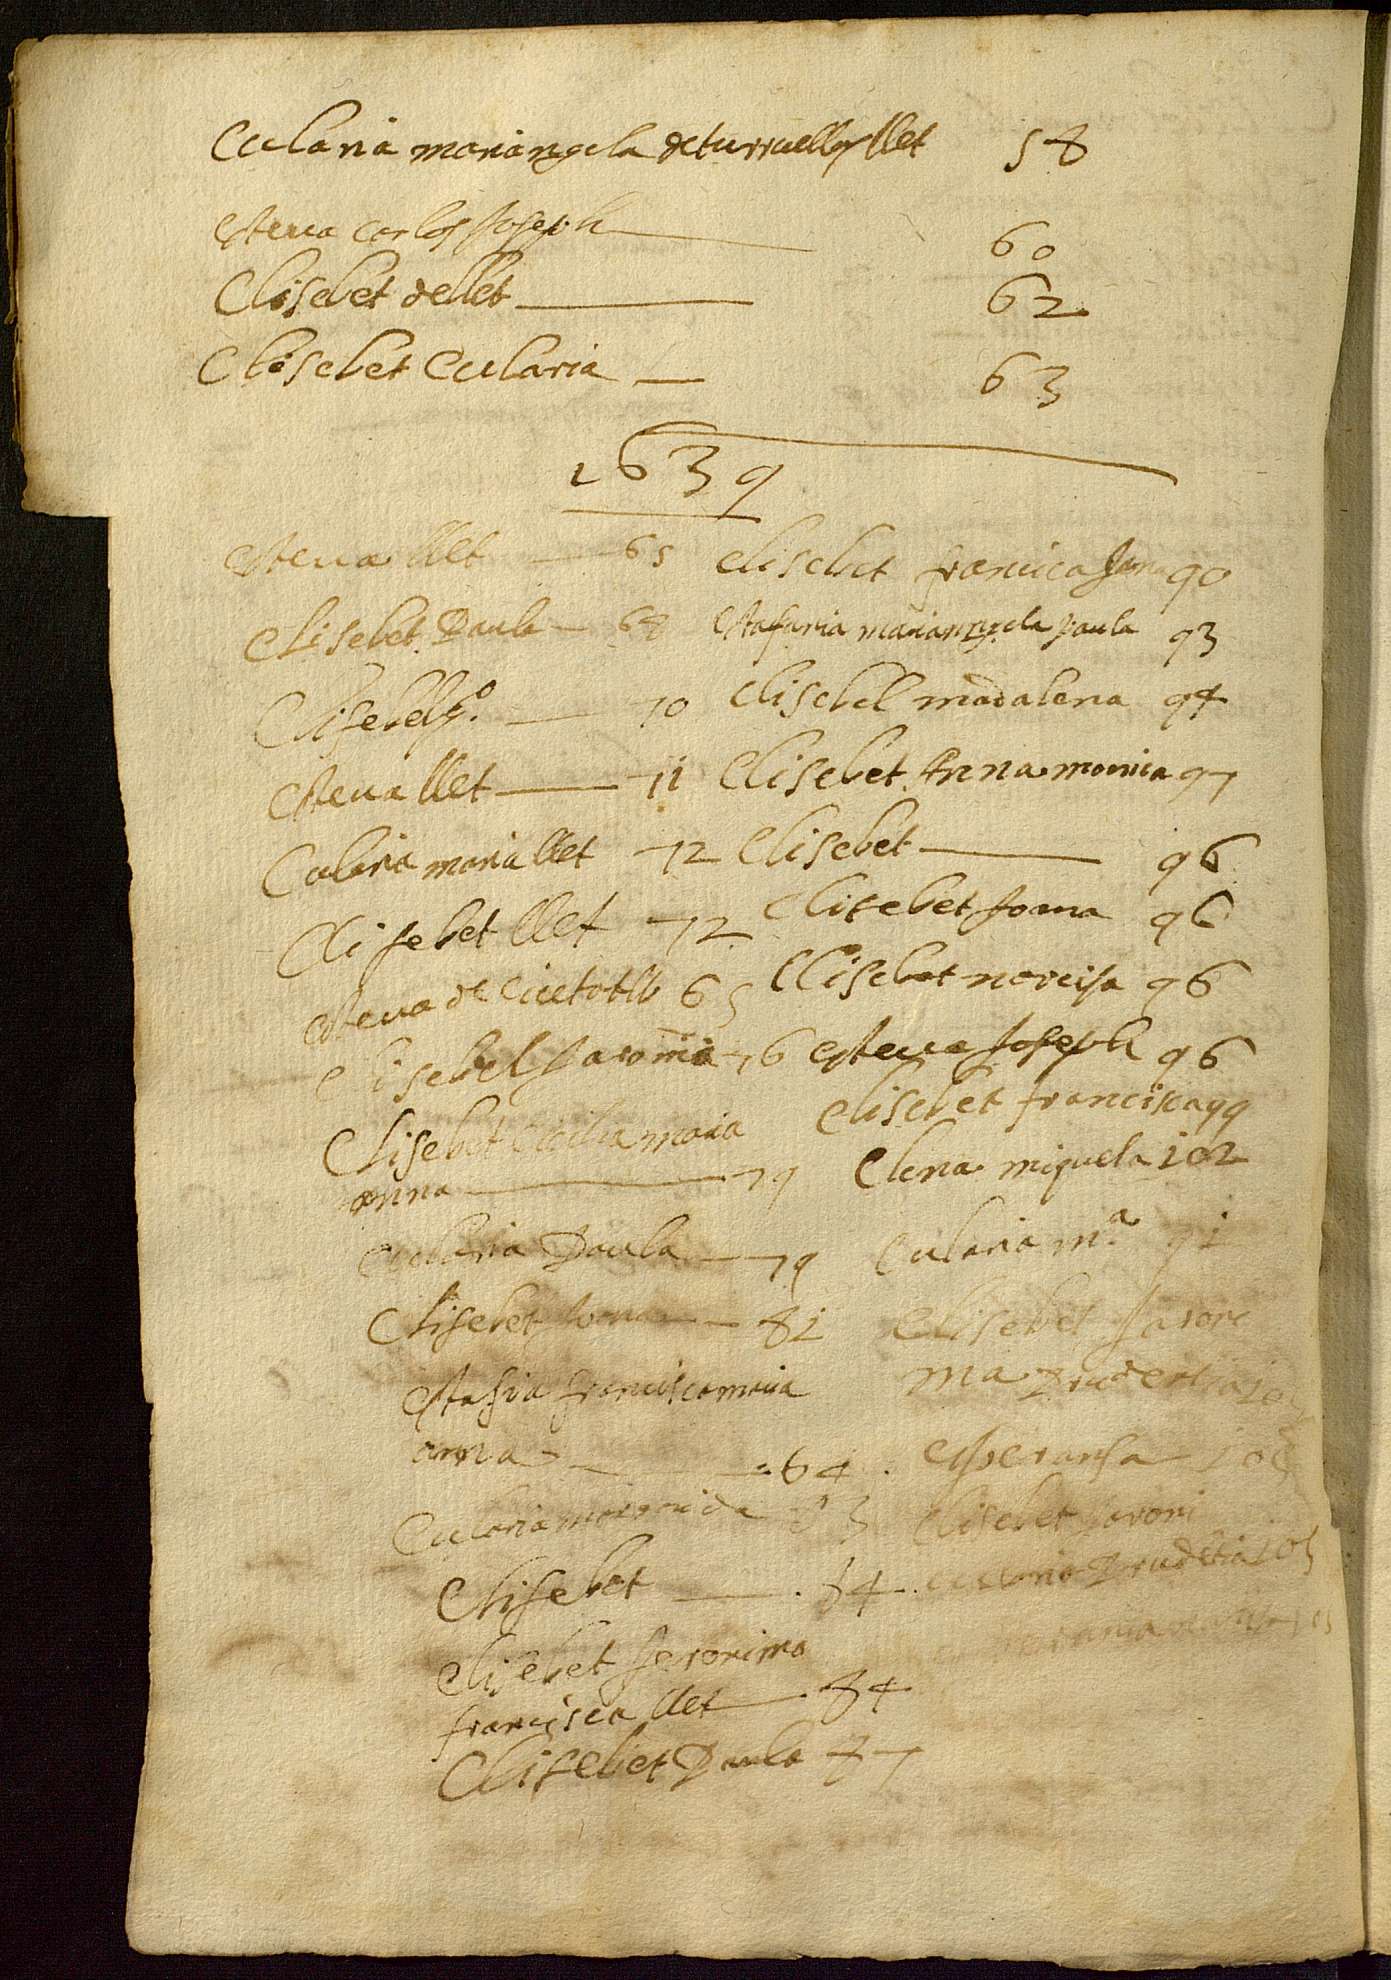 Eularia mariangela de turruella y llet 58
esteua carlos Joseph 60
Elisebet de llet 62
Elisebet Eularia 63
1639
esteua llet 65
Elisebet Paula 68
Elisebet 70
esteua llet 71
Eularia maria llet 72
Elisebet llet 72
esteua de 65
Elisebet Jaronima 76
Elisebet Cicilia maria
anna 79
Eularia Paula 79
Elisebet Juana 81
estasia francisca maria
anna 64
Eularia margarida 83
Elisebet 84
elisebet Jeronima
francisca llet 84
Elisebet Paula 87
elisebet francisca Juna 90
estafania mariangela paula 93
elisebet madalena 94
Elisebet Anna monica 97
Elisebet 96
Elisebet Joana 96
Elisebet narcisa 96
esteua Joseph 96
elisebet francisca 99
Elena miquela 102
Eularia mª 91
Elisebet Jaroni
ma Prudentia
esperansa 105
elisebet Jaroni
Prudetia 105